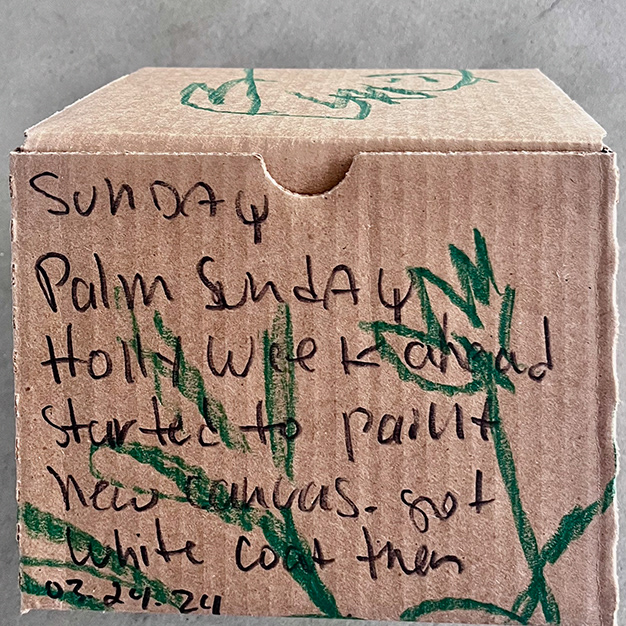 SUNDAY
Palm SundAy
Holly week ahead
started to paint
new canvas. got
white coat then
03.24.24